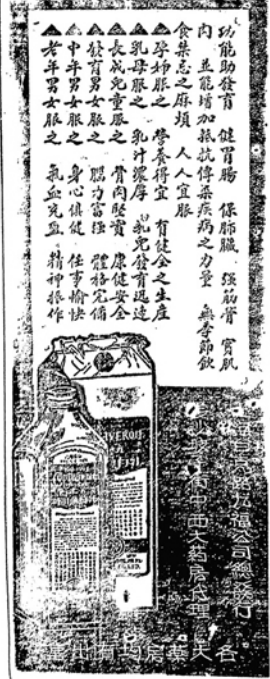 功能助發育　健胃腸　保肺臟　强筋骨　實肌
肉　並能增加抵抗傳染疾病之力量　無季節飲
食禁忌之麻煩　人人宜服
▲孕婦服之　營養得宜　有健全之生產
▲乳母服之　乳汁濃厚　乳兒發育迅速
▲長成兒童服之　骨肉堅實　康健安全
▲發育男女服之　腦力富强　體格完備
▲中年男女服之　身心俱健　任事愉快
▲老年男女服之　氣血充盈　精神振作
五福公司總發行
中西大藥房代理
各大藥房均有出售